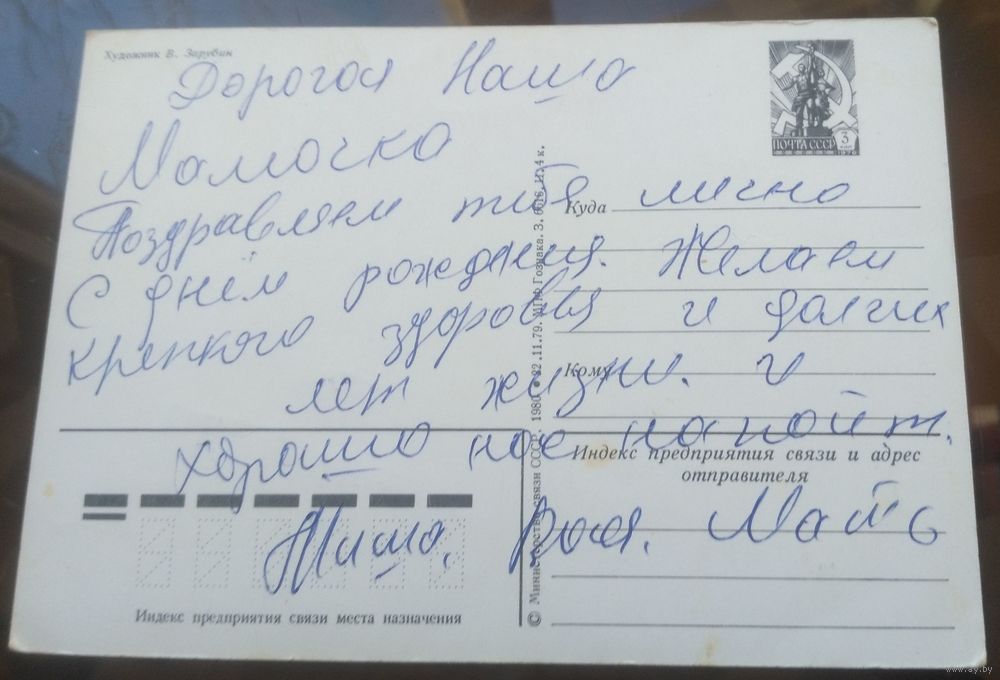 Художник В. Зарубин
Дорогая Наша
Мамочка
ПОЧТА СССР
3
КОП
1976
Поздравляем тебя лично
Куда
С днём рождения. Желаем
крепкого здоровья и долгих
Кому
лет жизни. и
хорошо нас напоит.
Индекс предприятия связи и адрес
отправителя
Миша. Рая. Мать
Индекс предприятия связи места назначения
© Министерство связи СССР. 1980 22.11.79. МПФ Гознака. З. 6616. Ц. 4 к.
www.ay.by